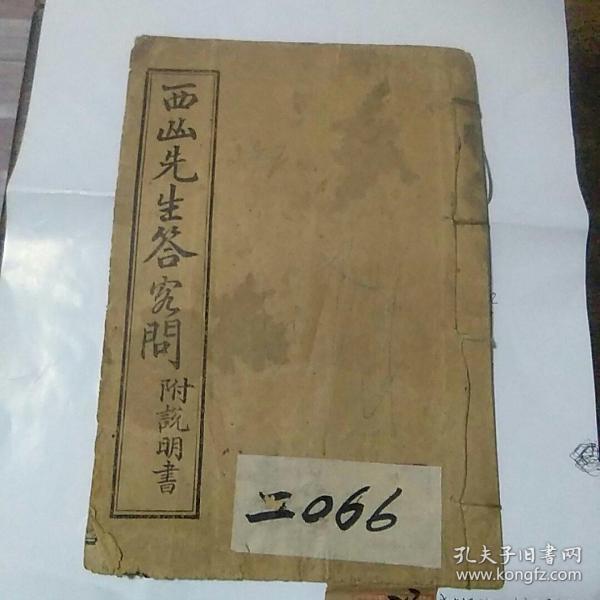 西山先生答客問
附說明書
二066
孔夫子旧書网
www.kongfz.com